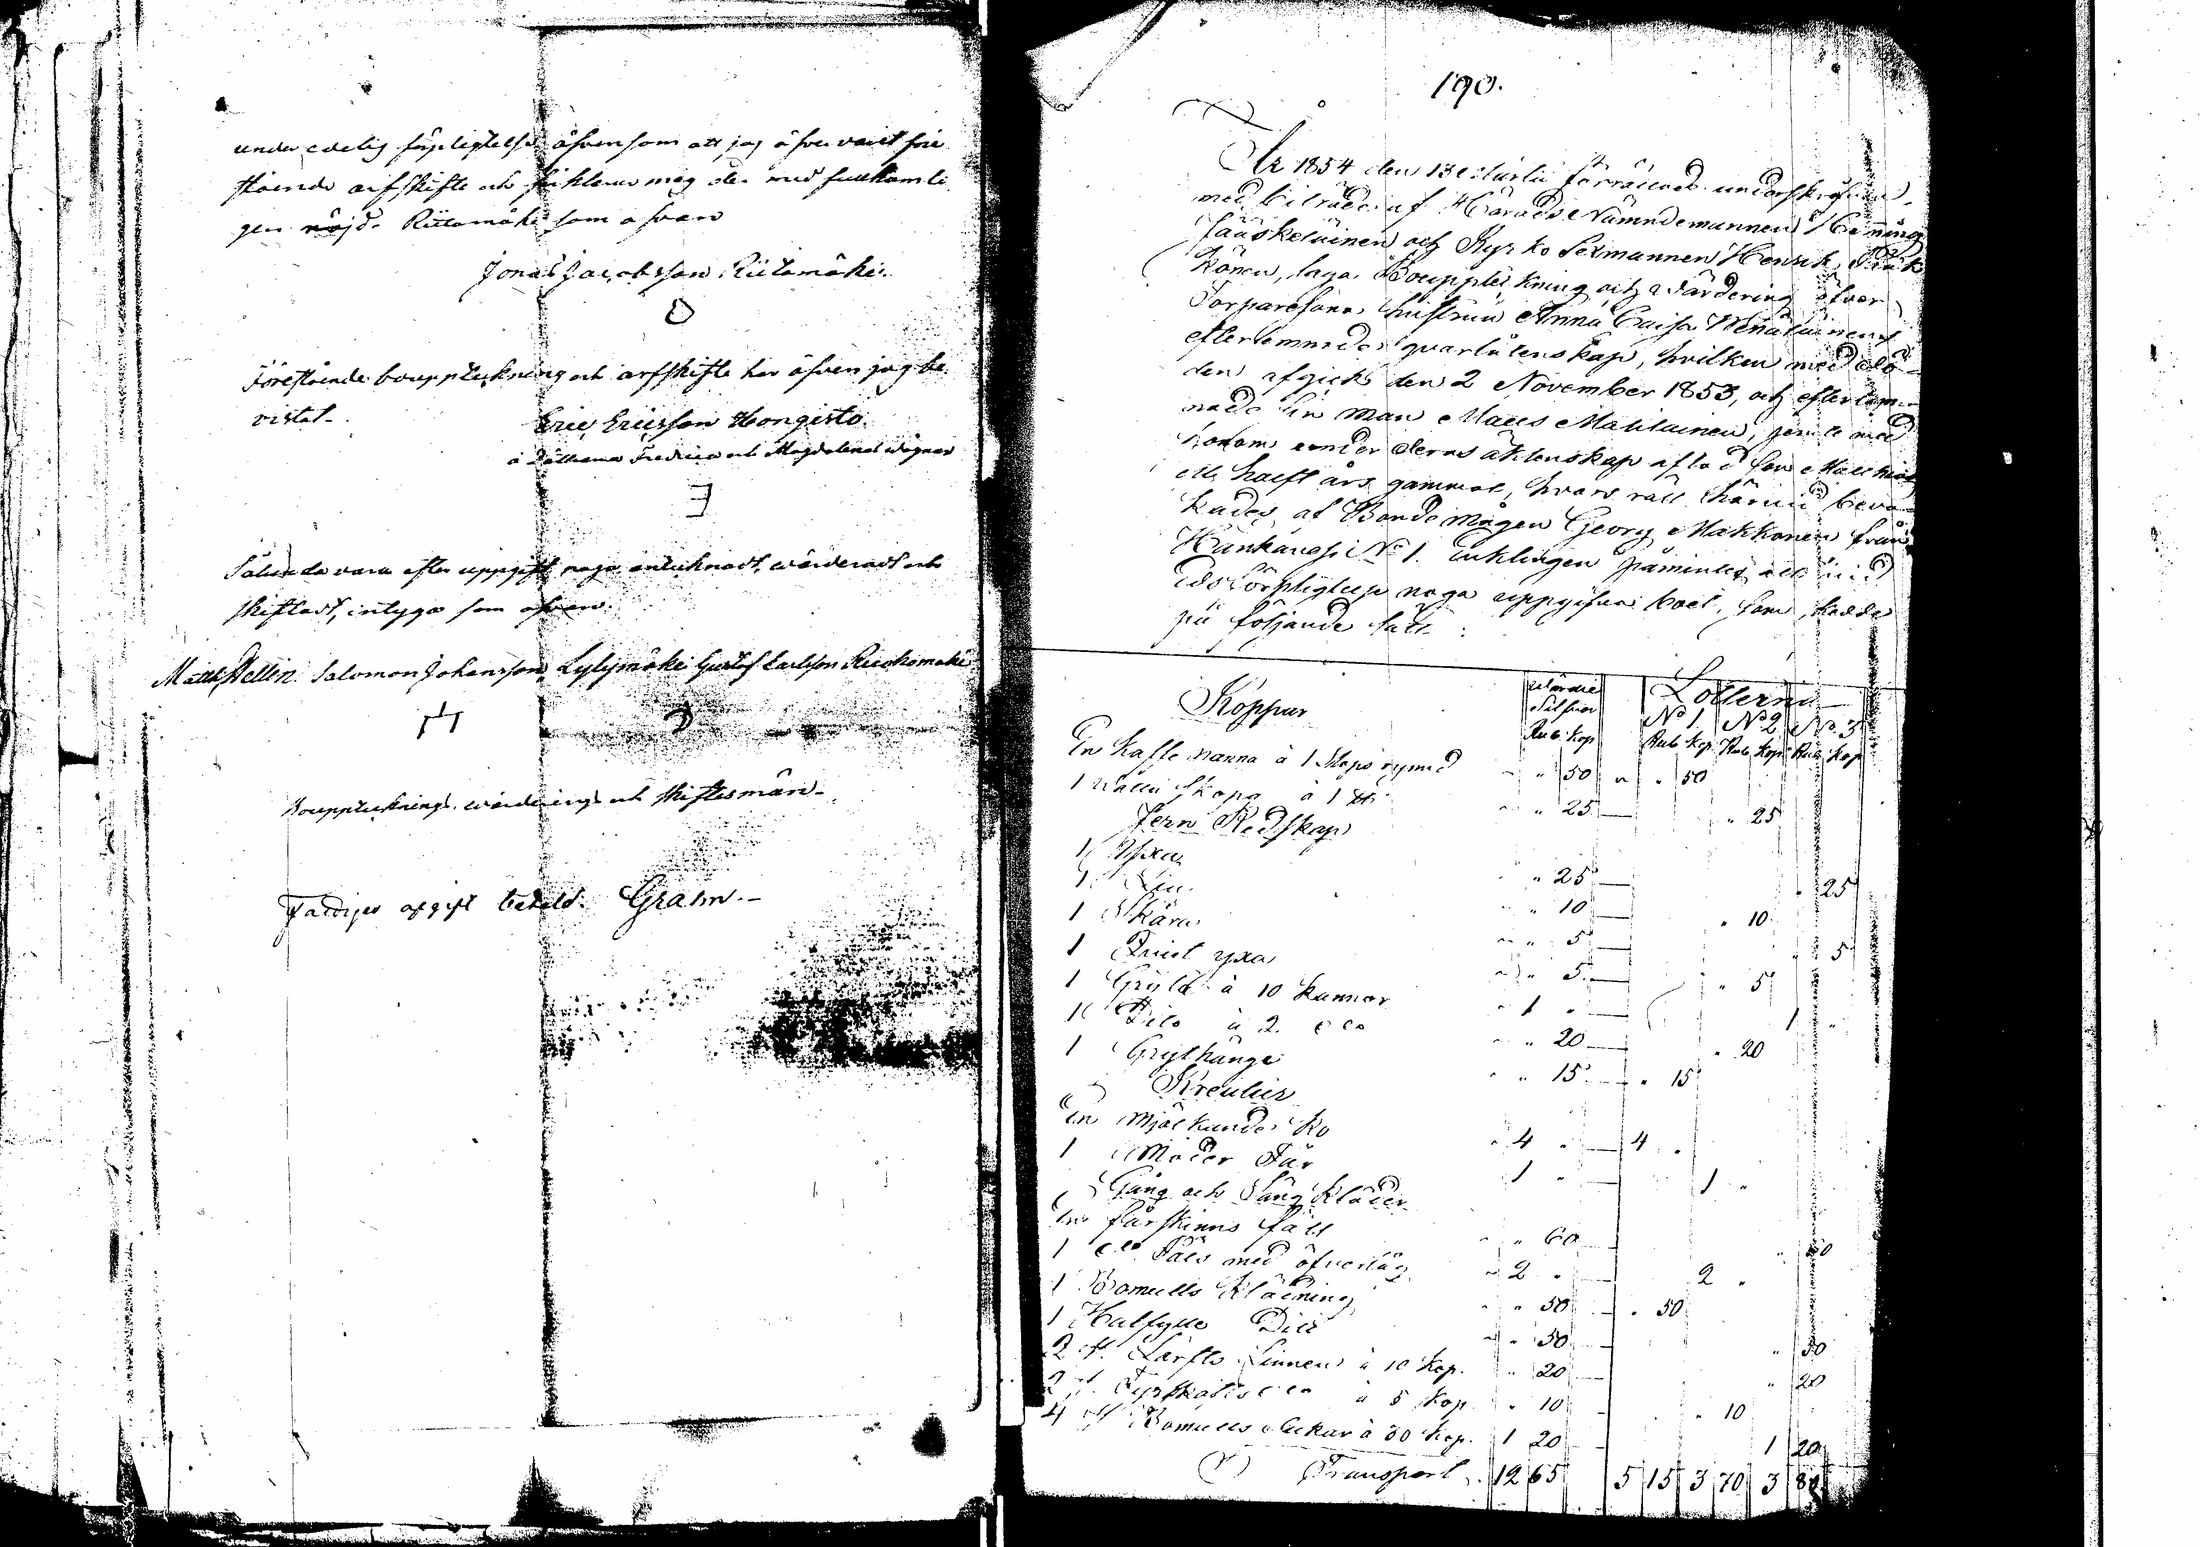 under edelig förpligtelse äfvensom att jag öfvervarit före
stående arfskifte och förklarar mig der med fullkomli
gen nöjd. Riitamäki som ofvan
Jonas Jacobsson Riitamäki.
Förestående bouppteckning och arfskifte har äfven jag be
vistat.
Eric Ericsson Hongisto.
å Fredrica och Magdalenas vägnar
Sålunda vara efter uppgift noga antecknadt, wärderadt och
skiftadt, intyga som ofvan.
Matts Hellin. Salomon Johansson Lylymäki Gustaf Carlsson Ruokomäki
Boupptecknings, wärderings och skiftesmän.
Fattiges afgift betald. Grahn.
190.
År 1854 den 13 Martii förrättade undertskrifvan
med biträde af Härads Nämndemannen Henning
Jääskeläinen och Kyrko Sexmannen Henrik
könen, laga Bouppteckning och Värdering öfver
Torparesons hustrun Anna Caisa Wenäläinens
efterlemnade qvarlåtenskap, hvilken med dö
den afgick den 2 November 1853, och efterlem
nade sin man Matts Matilainen, jemte med
honom under deras äktenskap aflad son
ett halft års gammal, hvars rätt härvid beva
kades af Bonde mågen Georg Makkonen från
Hänkäugs. No 1. Enklingen påmintes att vid
Eds förpligtelse noga uppgifva boet, som skedde
på följande sätt:
Koppar
Silfver
Rub. Kop
Lotterna
No 1. No 2 No 3
Rub Kop Rub Kop Rub Kop
En Kaffe Panna à 1 Stops rymd " 50 " 50
1 Skopa à 1 " 25 " 25
Jern Redskap
1 Yxa " 25 " 25
1 Lia " 10 " 10
1 Skära " 5 " 5
1 yxa " 5 " 5
1 Gryta à 10 Kannor 1 " 1 "
1 Dito à 2 do " 20 " 20
1 Grythänge " 15 " 15
Kreatur
En Mjölkande Ko 4 " 4 "
1 Moder Får 1 " 1 "
Gång och Säng Kläder
En fårskinns fäll " 60 " 60
1 do Päls med öfvertäg 2 " 2 "
1 Bomulls Klädning " 50 " 50
1 Halfylle Dito " 50 " 50
2 st. Lärfts Linnen à 10 Kop. " 20 " 20
2 st. do à 5 Kop " 10 " 10
4 st Bomulls Dukar à 30 Kop. 1 20 1 20
Transport 12 65 5 15 3 70 3 80